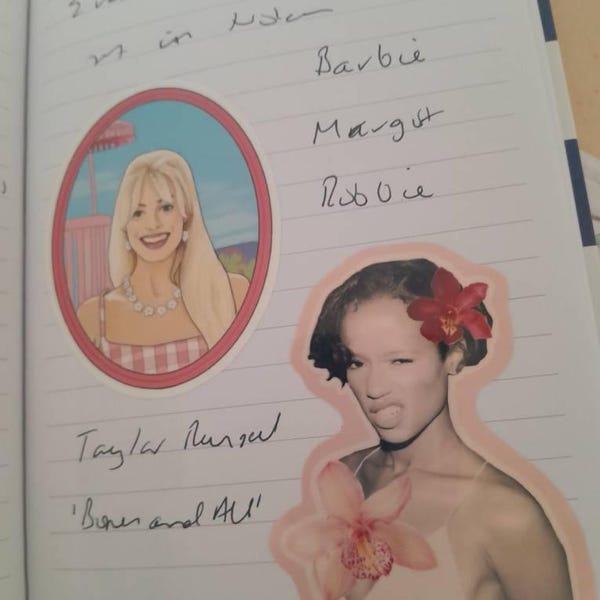 2
in
Barbie
Margot
Robbie
Taylor Russel
'Bones and All'